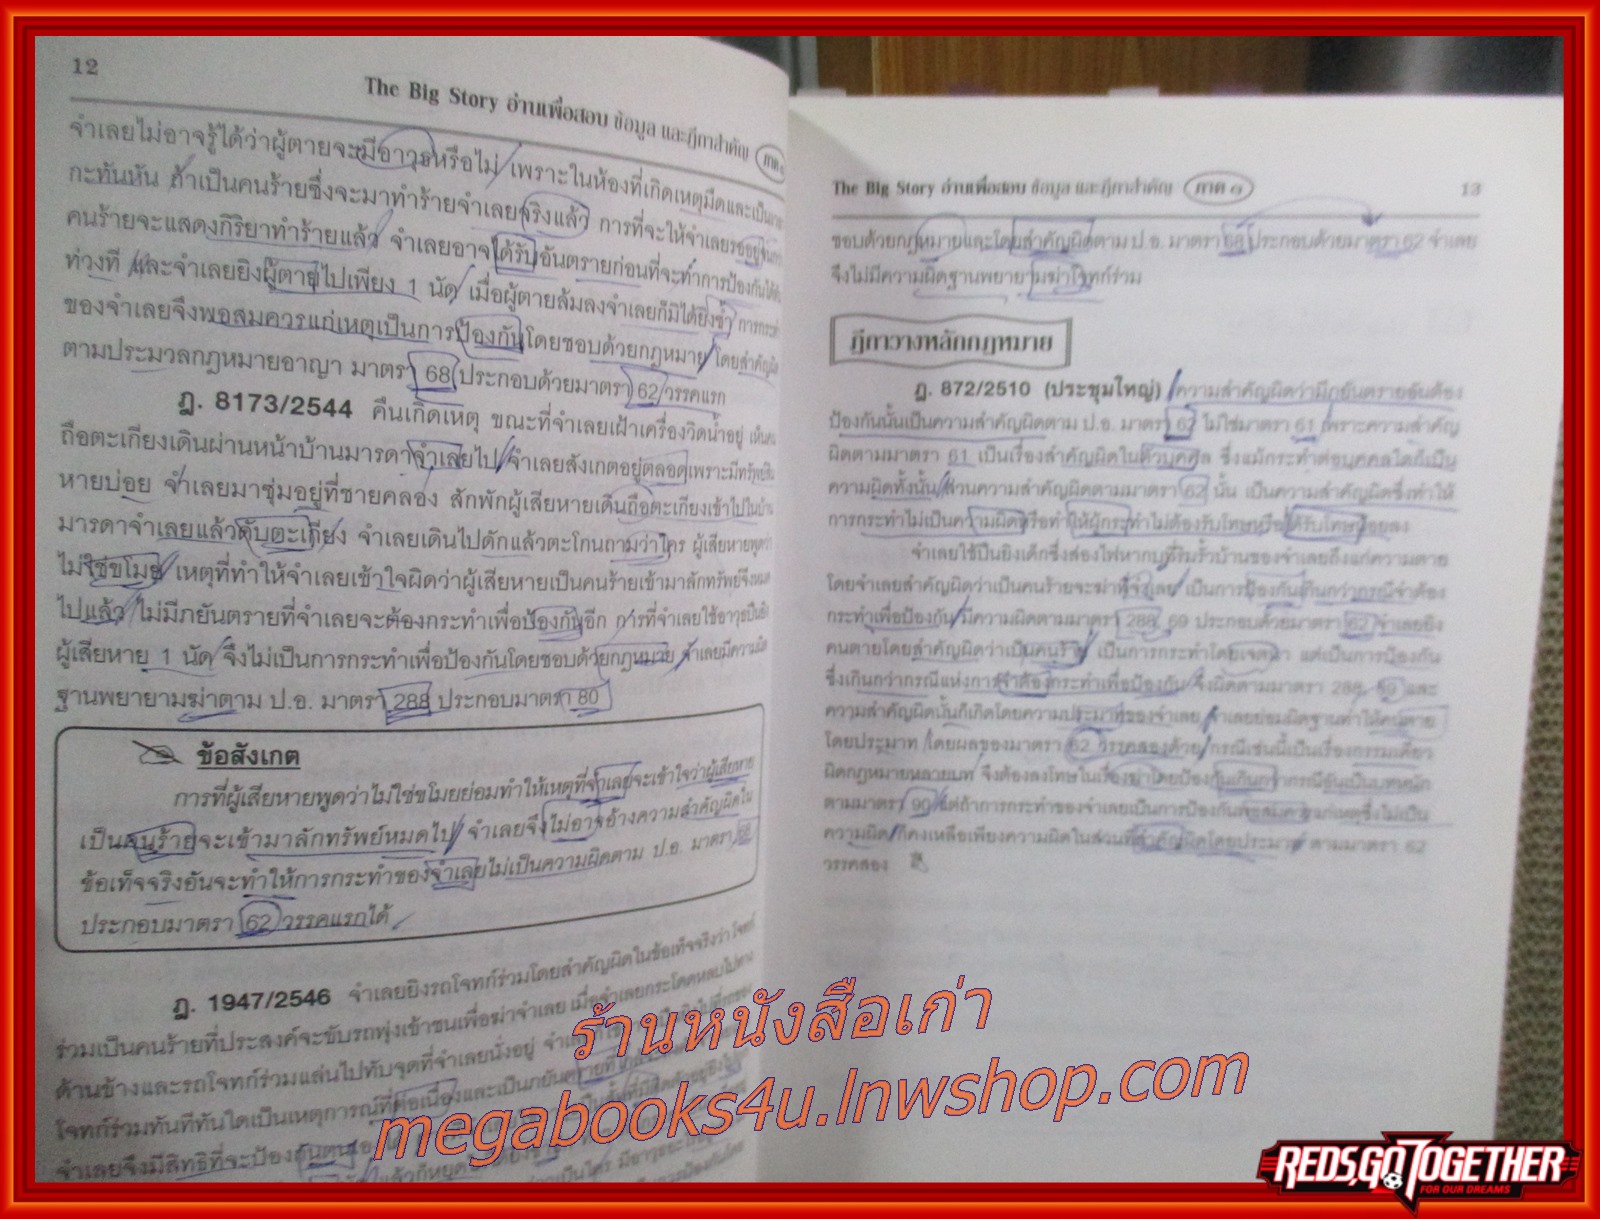 12
The Big Story อ่านเพื่อสอบ ข้อมูล และฎีกาสำคัญ ภาค ๑
จำเลยไม่อาจรู้ได้ว่าผู้ตายจะมีอาวุธหรือไม่ เพราะในห้องที่เกิดเหตุมืดและเป็นการ
กะทันหัน ถ้าเป็นคนร้ายซึ่งจะมาทำร้ายจำเลยจริงแล้ว การที่จะให้จำเลยรออยู่จนกว่า
คนร้ายจะแสดงกิริยาทำร้ายแล้ว จำเลยอาจได้รับอันตรายก่อนที่จะทำการป้องกันได้ทัน
ท่วงที และจำเลยยิงผู้ตายไปเพียง 1 นัด เมื่อผู้ตายล้มลงจำเลยก็มิได้ยิงซ้ำ การกระทำ
ของจำเลยจึงพอสมควรแก่เหตุเป็นการป้องกันโดยชอบด้วยกฎหมาย โดยสำคัญผิด
ตามประมวลกฎหมายอาญา มาตรา 68 ประกอบด้วยมาตรา 62 วรรคแรก
ฎ. 8173/2544 คืนเกิดเหตุ ขณะที่จำเลยเฝ้าเครื่องวิดน้ำอยู่ เห็นคน
ถือตะเกียงเดินผ่านหน้าบ้านมารดาจำเลยไป จำเลยสังเกตอยู่ตลอดเพราะมีทรัพย์สิน
หายบ่อย จำเลยมาซุ่มอยู่ที่ชายคลอง สักพักผู้เสียหายเดินถือตะเกียงเข้าไปในบ้าน
มารดาจำเลยแล้วดับตะเกียง จำเลยเดินไปดักแล้วตะโกนถามว่าใคร ผู้เสียหายพูดว่า
ไม่ใช่ขโมย เหตุที่ทำให้จำเลยเข้าใจผิดว่าผู้เสียหายเป็นคนร้ายเข้ามาลักทรัพย์จึงหมด
ไปแล้ว ไม่มีภยันตรายที่จำเลยจะต้องกระทำเพื่อป้องกันอีก การที่จำเลยใช้อาวุธปืนยิง
ผู้เสียหาย 1 นัด จึงไม่เป็นการกระทำเพื่อป้องกันโดยชอบด้วยกฎหมาย จำเลยมีความผิด
ฐานพยายามฆ่าตาม ป.อ. มาตรา 288 ประกอบมาตรา 80
ข้อสังเกต
การที่ผู้เสียหายพูดว่าไม่ใช่ขโมยย่อมทำให้เหตุที่จำเลยจะเข้าใจว่าผู้เสียหาย
เป็นคนร้ายจะเข้ามาลักทรัพย์หมดไป จำเลยจึงไม่อาจอ้างความสำคัญผิดใน
ข้อเท็จจริงอันจะทำให้การกระทำของจำเลยไม่เป็นความผิดตาม ป.อ. มาตรา 68
ประกอบมาตรา 62 วรรคแรกได้
ฎ. 1947/2546 จำเลยยิงรถโจทก์ร่วมโดยสำคัญผิดในข้อเท็จจริงว่าโจทก์
ร่วมเป็นคนร้ายที่ประสงค์จะขับรถพุ่งเข้าชนเพื่อฆ่าจำเลย เมื่อจำเลยกระโดดหลบไปทาง
ด้านข้างและรถโจทก์ร่วมแล่นไปทับจุดที่จำเลยนั่งอยู่
โจทก์ร่วมทันทีทันใดเป็นเหตุการณ์ที่ต่อเนื่องและเป็นภยันตรายที่
จำเลยจึงมีสิทธิที่จะป้องกันตน
The Big Story อ่านเพื่อสอบ ข้อมูล และฎีกาสำคัญ ภาค ๑
13
ชอบด้วยกฎหมายและโดยสำคัญผิดตาม ป.อ. มาตรา 68 ประกอบด้วยมาตรา 62 จำเลย
จึงไม่มีความผิดฐานพยายามฆ่าโจทก์ร่วม
ฎีกาวางหลักกฎหมาย
ฎ. 872/2510 (ประชุมใหญ่) ความสำคัญผิดว่ามีภยันตรายอันต้อง
ป้องกันนั้นเป็นความสำคัญผิดตาม ป.อ. มาตรา 62 ไม่ใช่มาตรา 61 เพราะความสำคัญ
ผิดตามมาตรา 61 เป็นเรื่องสำคัญผิดในตัวบุคคล ซึ่งแม้กระทำต่อบุคคลใดก็เป็น
ความผิดทั้งนั้น ส่วนความสำคัญผิดตามมาตรา 62 นั้น เป็นความสำคัญผิดซึ่งทำให้
การกระทำไม่เป็นความผิดหรือทำให้ผู้กระทำไม่ต้องรับโทษหรือได้รับโทษน้อยลง
จำเลยใช้ปืนยิงเด็กซึ่งส่องไฟหากบที่ริมรั้วบ้านของจำเลยถึงแก่ความตาย
โดยจำเลยสำคัญผิดว่าเป็นคนร้ายจะฆ่าจำเลย เป็นการป้องกันเกินกว่ากรณีจำต้อง
กระทำเพื่อป้องกัน มีความผิดตามมาตรา 288, 69 ประกอบด้วยมาตรา 62 จำเลยยิง
คนตายโดยสำคัญผิดว่าเป็นคนร้าย เป็นการกระทำโดยเจตนา แต่เป็นการป้องกัน
ซึ่งเกินกว่ากรณีแห่งการจำต้องกระทำเพื่อป้องกัน จึงผิดตามมาตรา 288, 69 และ
ความสำคัญผิดนั้นก็เกิดโดยความประมาทของจำเลย จำเลยย่อมผิดฐานทำให้คนตาย
โดยประมาท โดยผลของมาตรา 62 วรรคสองด้วย กรณีเช่นนี้เป็นเรื่องกรรมเดียว
ผิดกฎหมายหลายบท จึงต้องลงโทษในเรื่องฆ่าโดยป้องกันเกินกว่ากรณีอันเป็นบทหนัก
ตามมาตรา 90 แต่ถ้าการกระทำของจำเลยเป็นการป้องกันพอสมควรแก่เหตุซึ่งไม่เป็น
ความผิด ก็คงเหลือเพียงความผิดในส่วนที่สำคัญผิดโดยประมาท ตามมาตรา 62
วรรคสอง
ร้านหนังสือเก่า
megabooks4u.lnwshop.com
REDS,GO TOGETHER
FOR OUR DREAMS